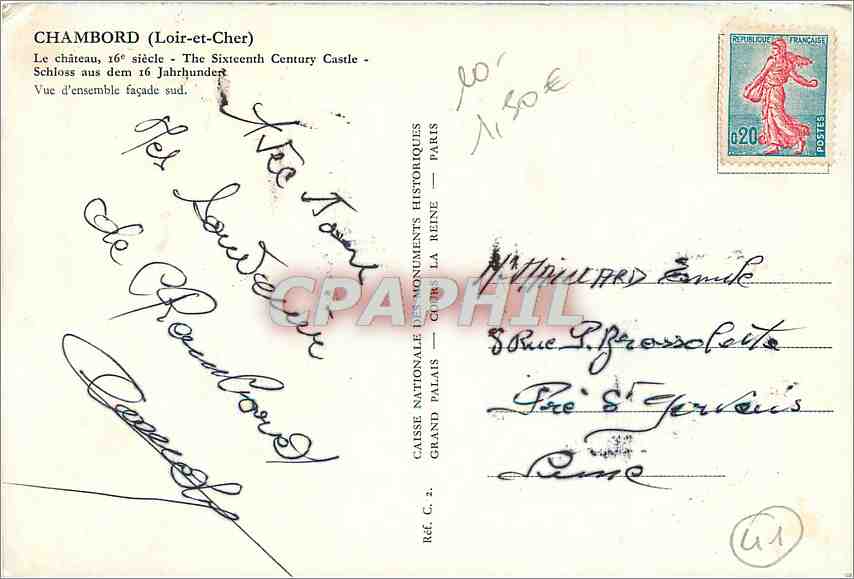 CHAMBORD (Loir-et-Cher)
Le château, 16e siècle - The Sixteenth Century Castle -
Schloss aus dem 16 Jahrhundert
Vue d'ensemble façade sud.
Avec tout
mes souvenir
de Chambord
CAISSE NATIONALE DES MONUMENTS HISTORIQUES
GRAND PALAIS — COURS LA REINE — PARIS
Réf. C. 2.
10
1,50 €
REPUBLIQUE FRANÇAISE
0,20
POSTES
CPAPHIL
Mr MAILLARD Emile
8 Rue P. Brossolette
Pré St Gervais
Seine
41